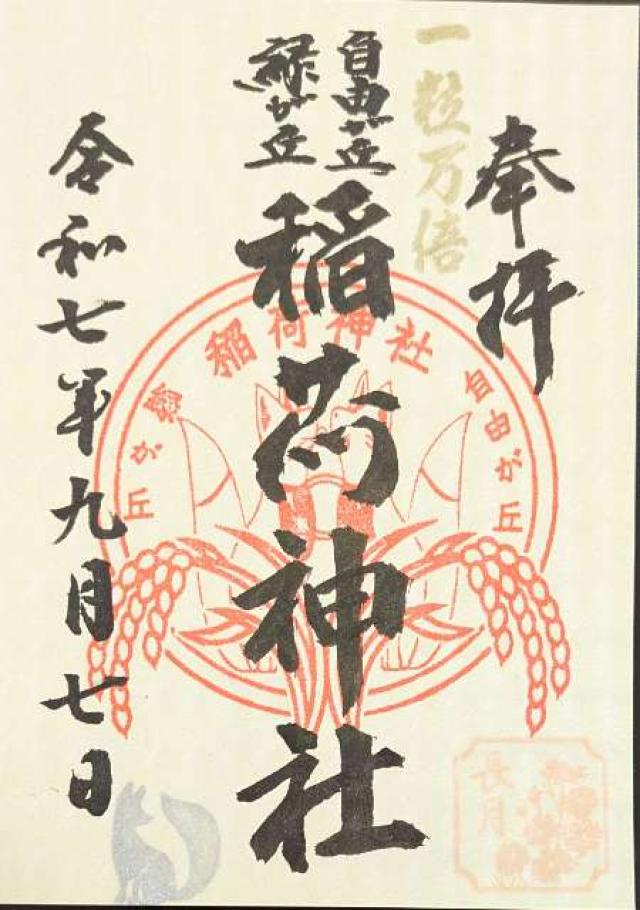 奉拝
一粒万倍
自由が丘
緑が丘
稲荷神社
令和七年九月七日
稲荷神社
自由が丘
緑が丘
長月